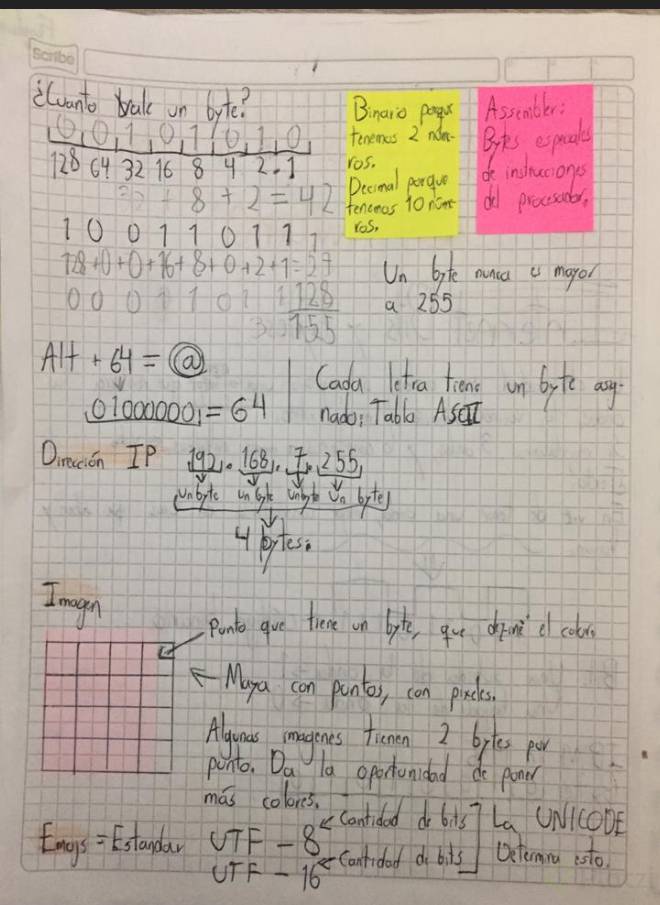 Scribe
¿Cuanto vale un byte?
0 0 1 0 1 0 1 0
128 64 32 16 8 4 2 1
8 + 2 = 42
1 0 0 1 1 0 1 1
128+0+0+16+8+0+2+1=27
0 0 0 1 1 0 1 1 128
155
Binario porque
tenemos 2 núm-
ros.
Decimal porque
tenemos 10 núme
ros.
Assembler:
Bytes especiales
de instrucciones
del procesador.
Un byte nunca es mayor
a 255
Alt + 64 = @
01000000 = 64
Cada letra tiene un byte asig-
nado: Tabla ASCII
Dirección IP 192. 168. 7. 255
un byte un byte un byte un byte
4 bytes.
Imagen
Punto que tiene un byte, que define el color.
Maya con puntos, con pixeles.
Algunas imagenes tienen 2 bytes por
punto. Da la oportunidad de poner
más colores.
Emojs = Estandar UTF - 8 Cantidad de bits
UTF - 16 Cantidad de bits
La UNICODE
Determina esto.